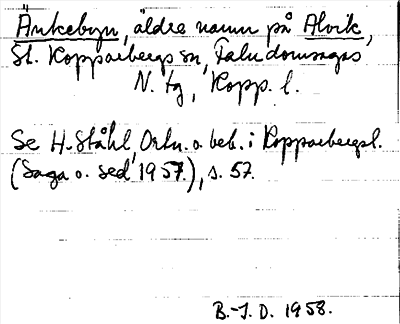 Änkebyn, äldre namn på Alvik,
St. Kopparbergs sn, Falu domsagas
N. tg, Kopp. l.
Se H. Ståhl, Ortn. o. beb. i Kopparbergsl.
(Saga o. sed 1957.), s. 57.
B.-J. D. 1958.